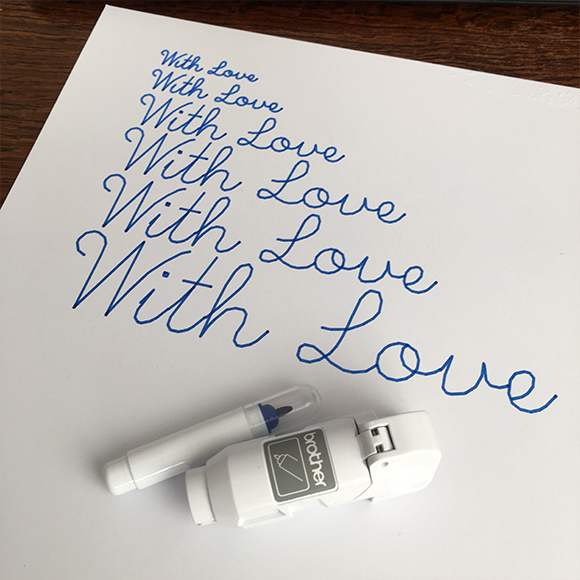 With Love
With Love
With Love
With Love
With Love
With Love
brother